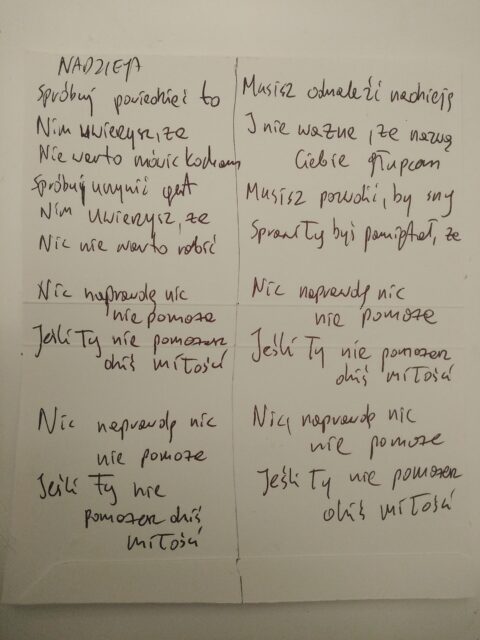 NADZIEJA
Spróbuj powiedzieć to
Nim uwierzysz, że
Nie warto mówić kocham
Spróbuj uczynić gest
Nim uwierzysz, że
Nic nie warto robić
Nic naprawdę nic
nie pomoże
Jeśli Ty nie pomożesz
dziś miłości
Nic naprawdę nic
nie pomoże
Jeśli Ty nie
pomożesz dziś
miłości
Musisz odnaleźć nadzieję
I nie ważne, że nazwą
Ciebie głupcem
Musisz pozwolić, by sny
Sprawiły byś pamiętał, że
Nic naprawdę nic
nie pomoże
Jeśli Ty nie pomożesz
dziś miłości
Nic, naprawdę nic
nie pomoże
Jeśli Ty nie pomożesz
dziś miłości